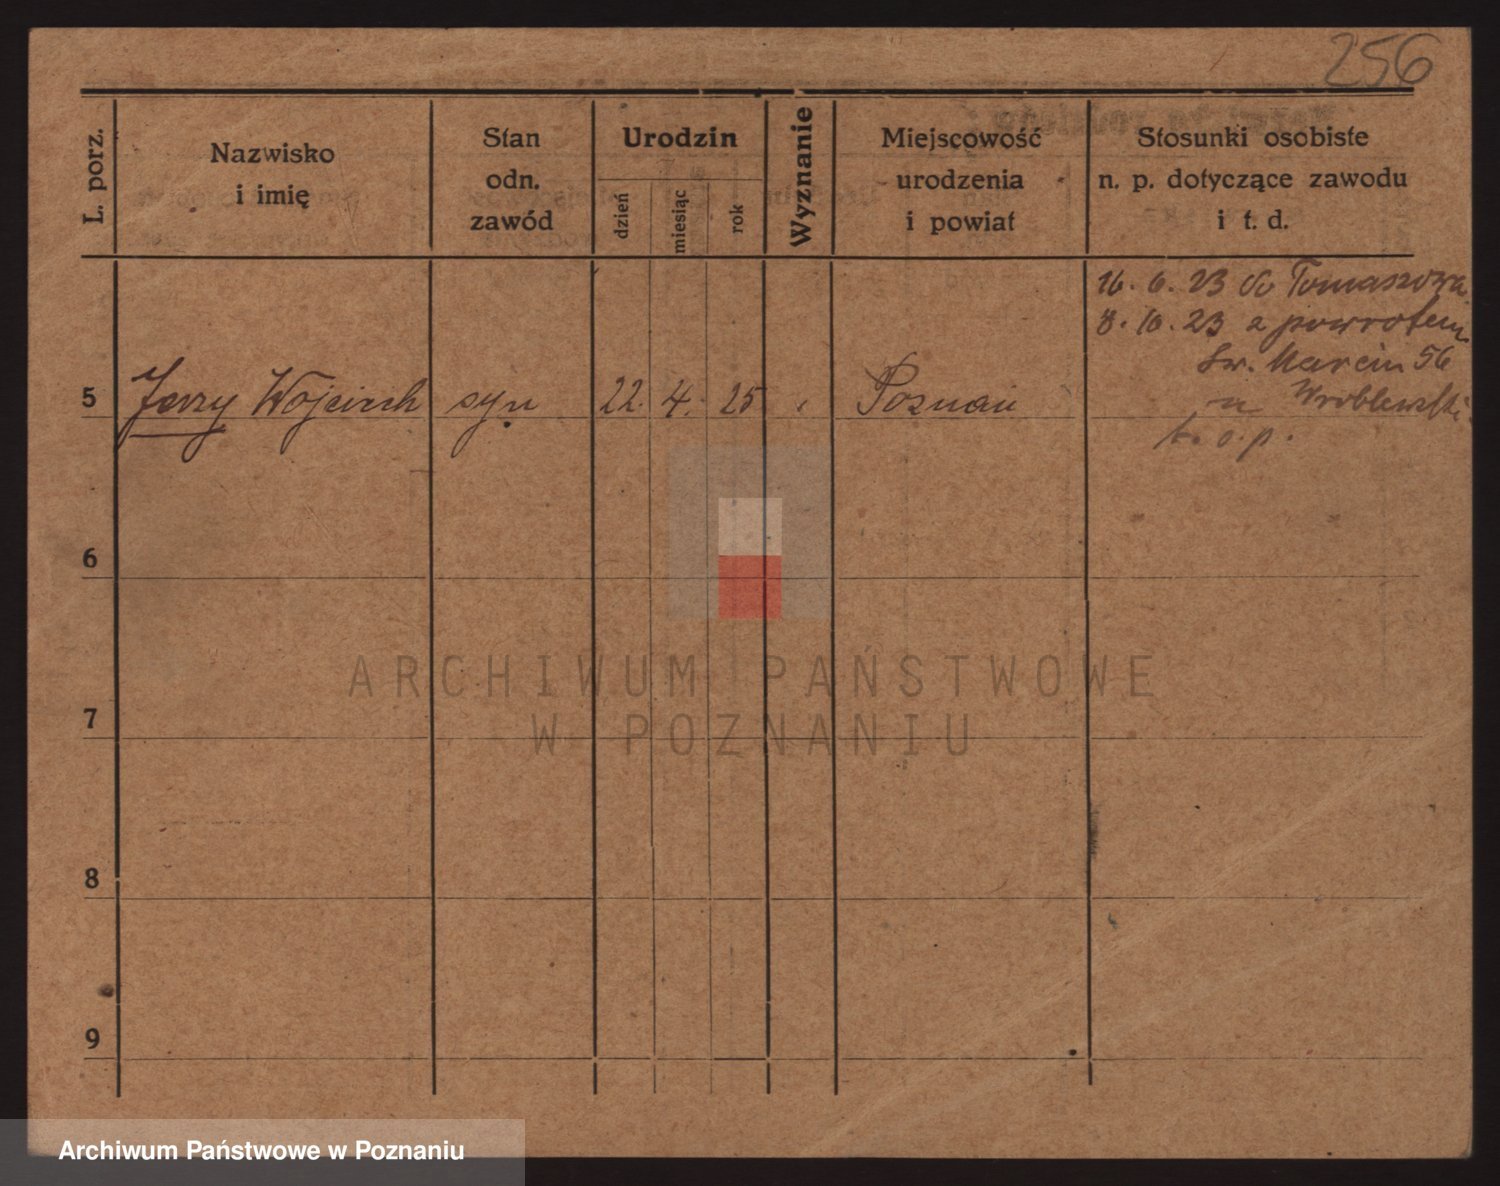 256
L. porz.
Nazwisko
i imię
Stan
odn.
zawód
Urodzin
dzień
miesiąc
rok
Wyznanie
Miejscowość
urodzenia
i powiat
Stosunki osobiste
n. p. dotyczące zawodu
i t. d.
16. 6. 23 do Tomaszowa
8. 10. 23 z powrotem
Św. Marcin 56
5 Jerzy Wojciech syn 22. 4. 25 Poznań
u Wróblewski
t. o. p.
6
7
8
9
ARCHIWUM PAŃSTWOWE
W POZNANIU
Archiwum Państwowe w Poznaniu